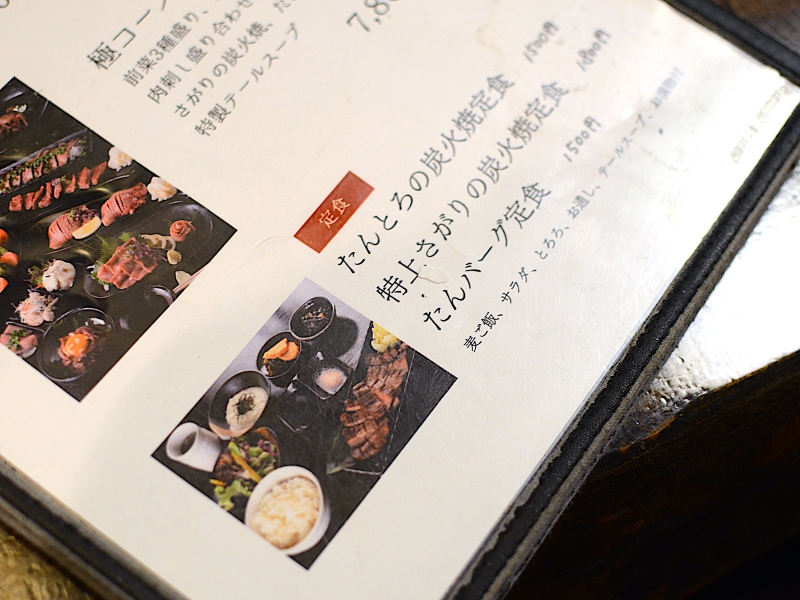 極コー
前菜3種盛り、
肉刺し盛り合わせ
さがりの炭火焼、た
特製テールスープ
7,8
定食
たんとろの炭火焼定食 1500円
特上さがりの炭火焼定食 1800円
たんバーグ定食 1500円
麦ご飯、サラダ、とろろ、お通し、テールスープ、お漬物付